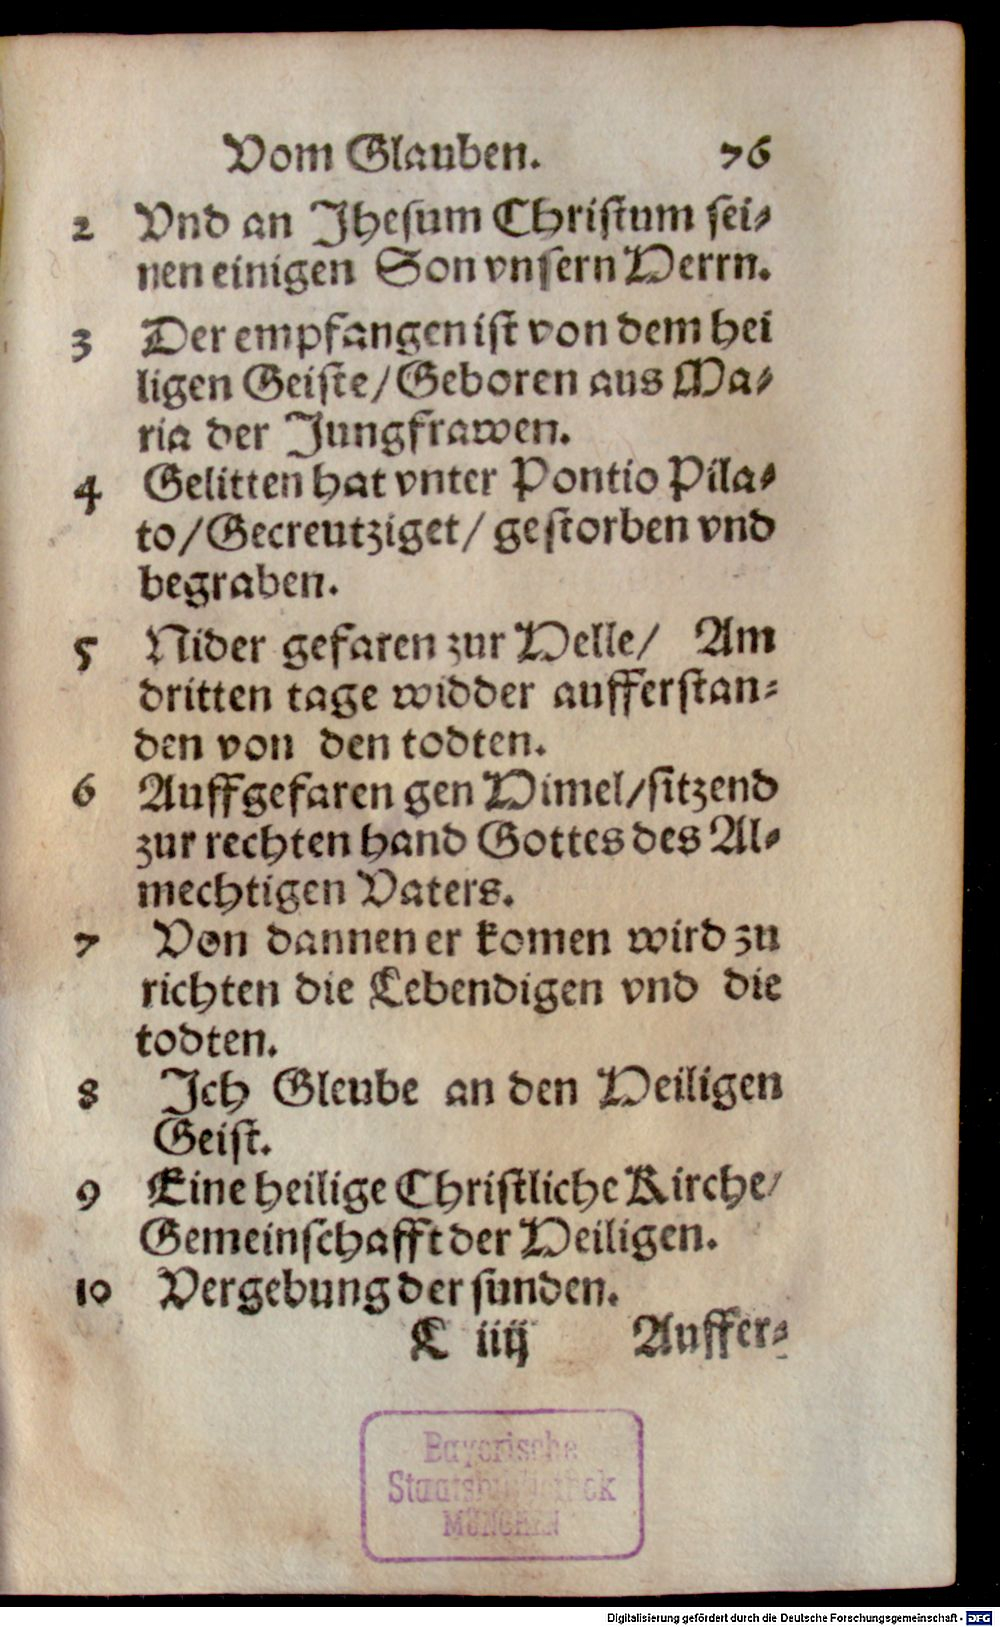 Vom Glauben. 76
2 Vnd an Jhesum Christum sei⸗
nen einigen Son vnsern Herrn.
3 Der empfangen ist von dem hei
ligen Geiste/ Geboren aus Ma⸗
ria der Jungfrawen.
4 Gelitten hat vnter Pontio Pila⸗
to/ Gecreutziget/ gestorben vnd
begraben.
5 Nider gefaren zur Helle/ Am
dritten tage widder aufferstan⸗
den von den todten.
6 Auffgefaren gen Himel/ sitzend
zur rechten hand Gottes des Al⸗
mechtigen Vaters.
7 Von dannen er komen wird zu
richten die Lebendigen vnd die
todten.
8 Jch Gleube an den Heiligen
Geist.
9 Eine heilige Christliche Kirche/
Gemeinschafft der Heiligen.
10 Vergebung der sunden.
L iiij Auffer⸗
Bayerische
Staatsbibliothek
MÜNCHEN
Digitalisierung gefördert durch die Deutsche Forschungsgemeinschaft - DFG